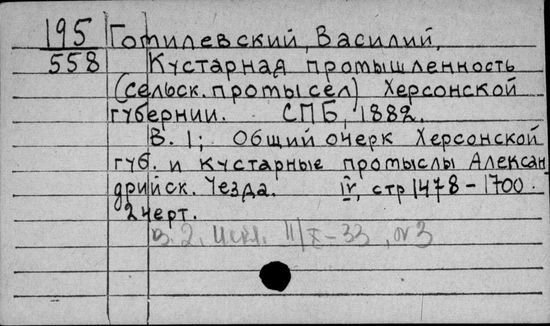 195 Гомилевский, Василий,
558 Кустарная промышленность
(сельск. промысел) Херсонской
губернии. СПБ, 1882.
В. 1; Общий очерк Херсонской
губ. и кустарные промыслы Алексан
дрийск. Уезда. IV, стр 1478-1700.
2 черт.
В. 2. Искл. 11/X-33, № 3